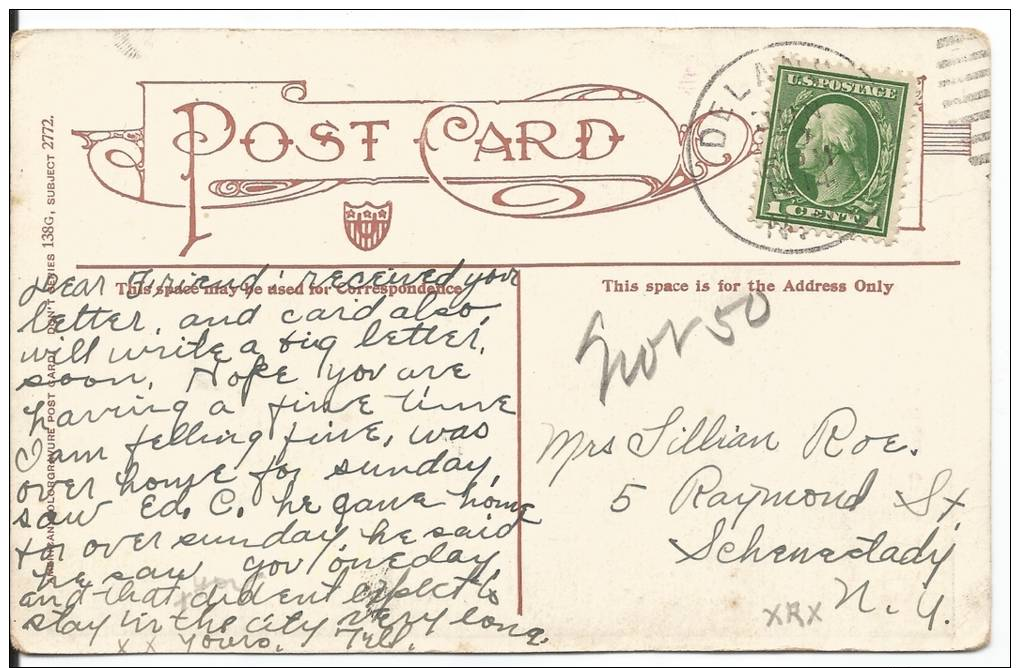 POST CARD
U.S. POSTAGE
1 CENT 1
DELAN
AMERICAN COLORGRAVURE POST CARD. SERIES 138G, SUBJECT 2772.
This space may be used for Correspondence
This space is for the Address Only
Dear Friend, received your
letter, and card also,
will write a big letter,
soon. Hope you are
having a fine time
I am felling fine, was
over home for sunday,
saw Ed. C. he came home
for over sunday he said
he saw you oneday
and that did ent expect to
stay in the city very long.
x x Yours, Tell.
50
Mrs Lillian Roe.
5 Raymond St
Schenectady
N. Y.
XRX